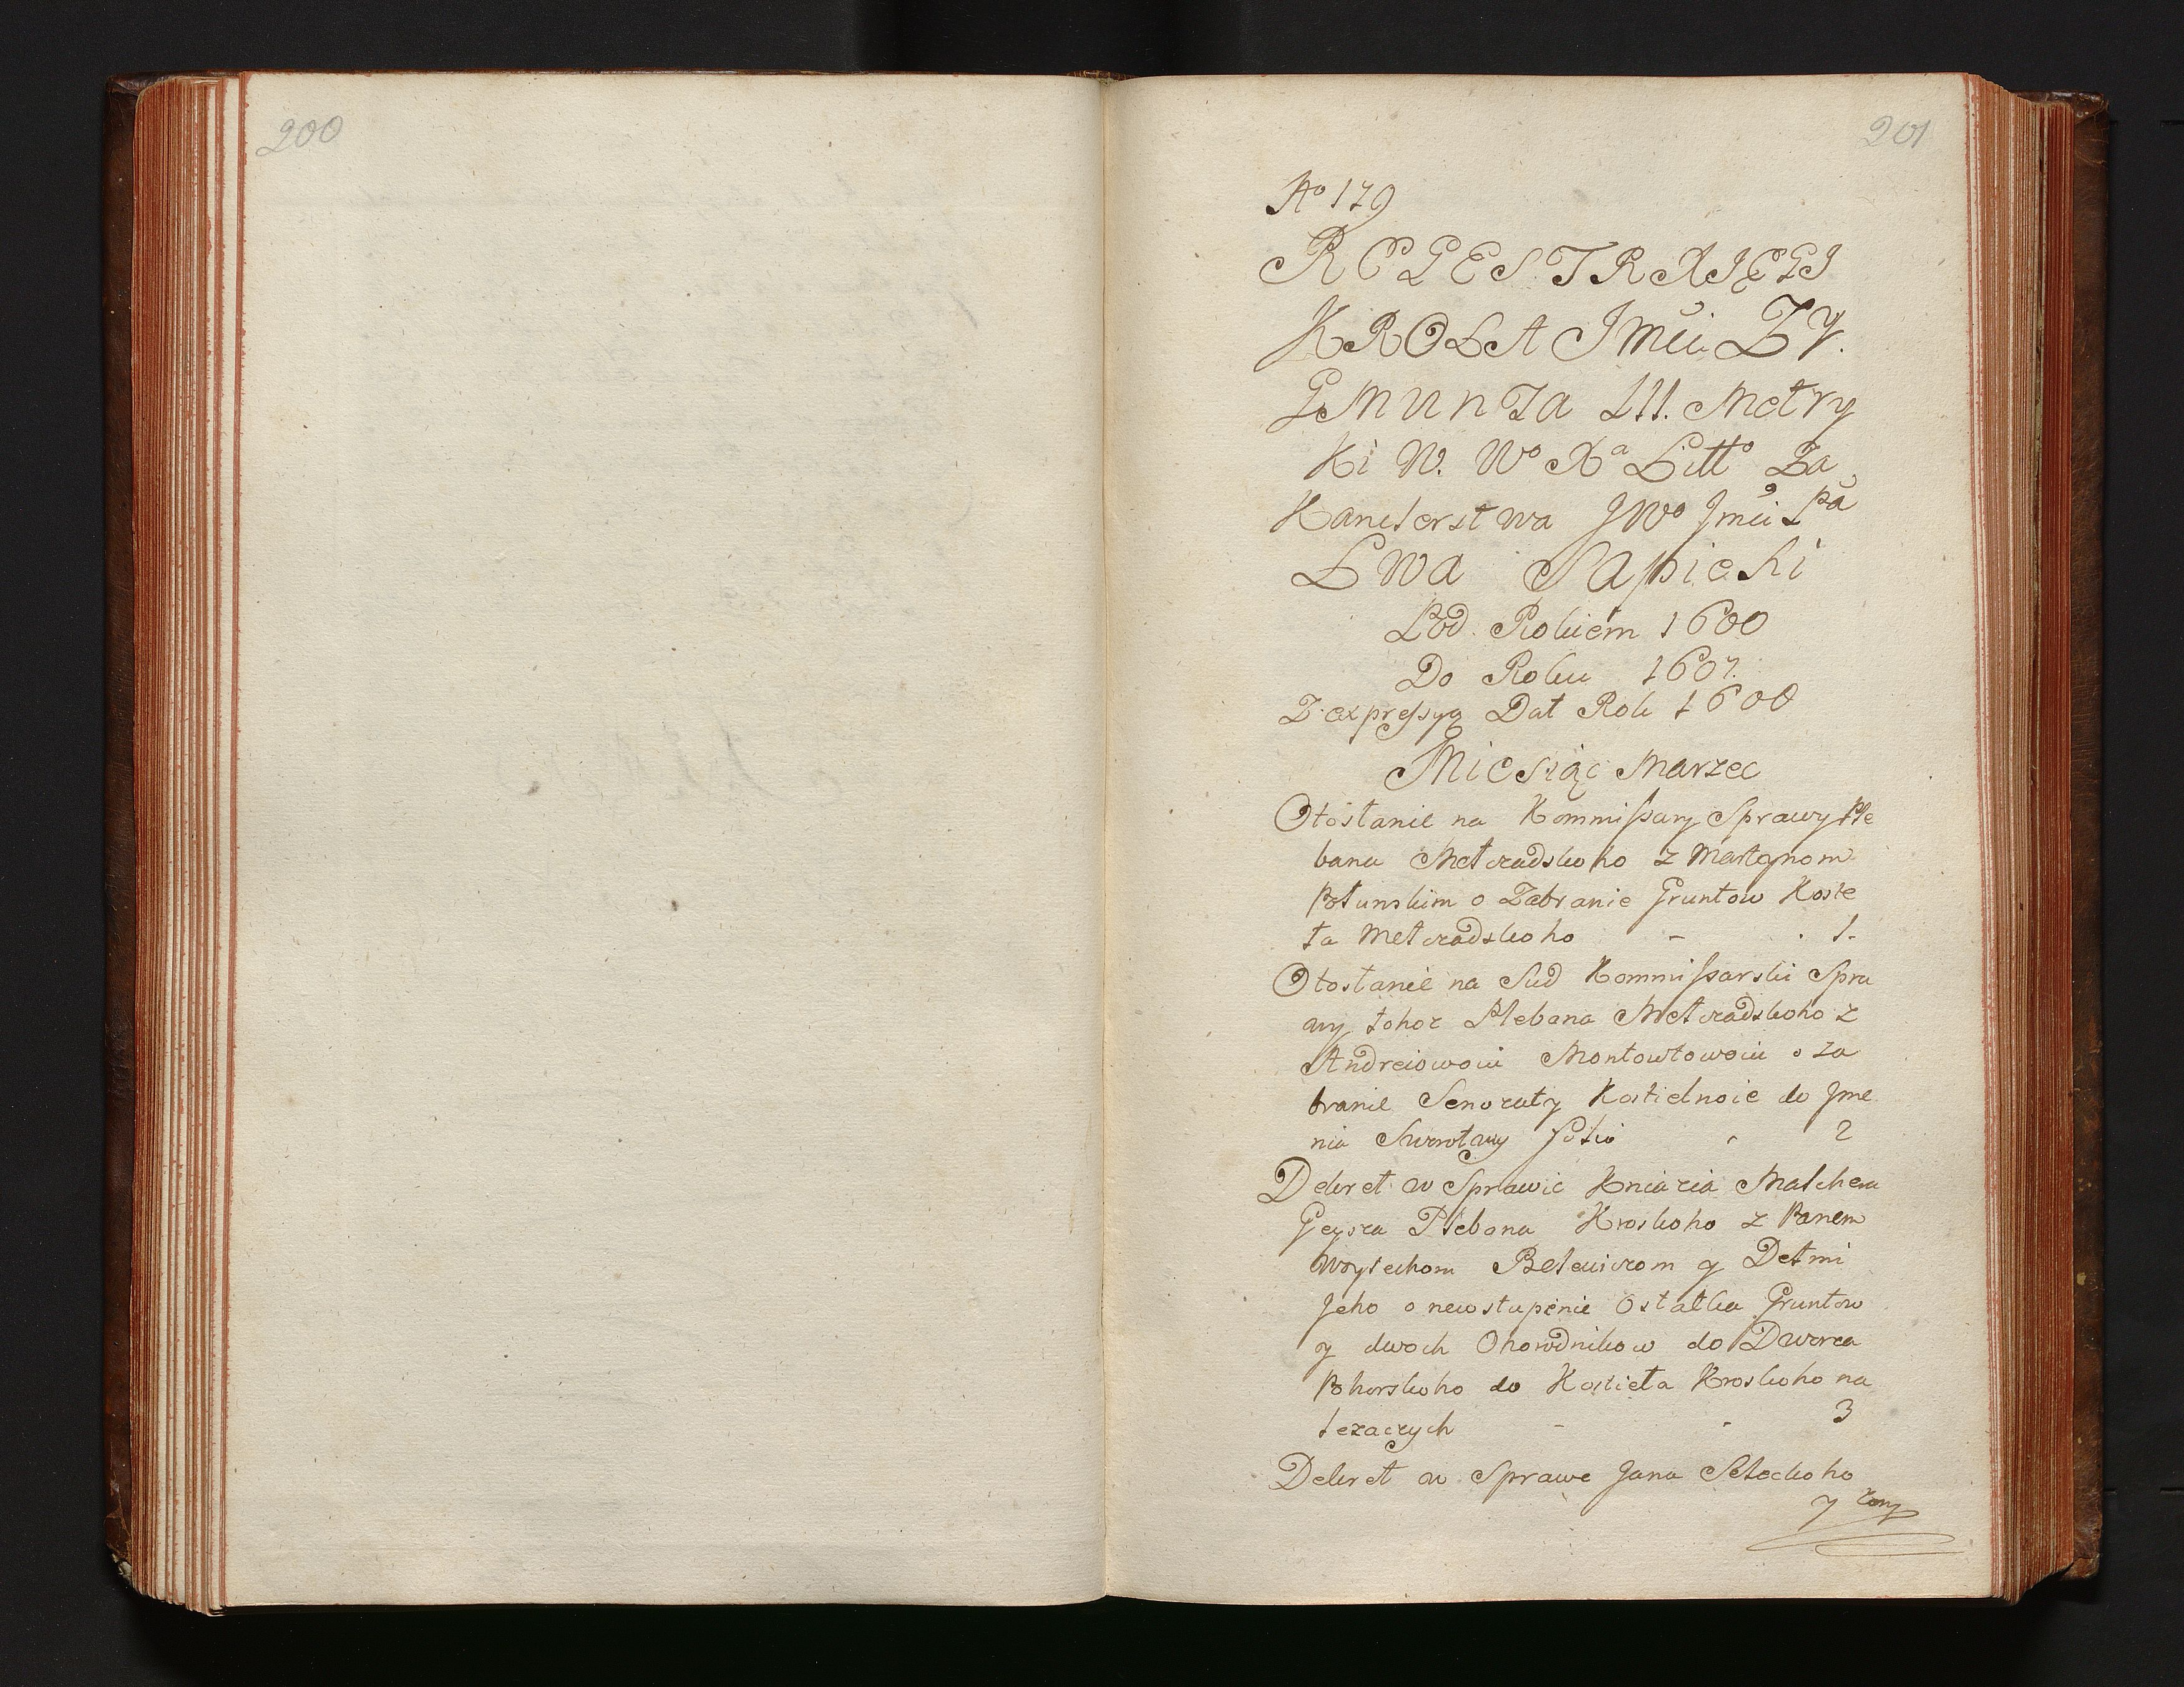 200
201
No 179
REGESTR XIĘGI
KROLA Jmći ZY.
GMUNTA III. Metry
ki W. Wo Xa Litto Za
Kanclerstwa JWo Jmći Pa
Lwa Sapiehi
Pod Rokiem 1600
Do Roku 1607.
Z expressyą Dat Rok 1600
Miesiąc Marzec
Otosłanie na Kommissary Sprawy Ple
bana Meteradskoho z Martynom
o Zabranie Gruntow Koste
ła Meteradskoho - . 1.
Otosłanie na Sud Kommissarski Spra
wy tohoz Plebana Meteradskoho z
Andreiowom Montowtowom o za
branie Senozaty Kostielnoie do Jme
nia 2
Dekret w Sprawie Kniazia Malchera
Geysza Plebana Kroskoho z Panem
Woytechom y Detmi
Jeho o newstupenie Ostatka Gruntow
y dwoch Ohorodnikow do Dworca
Pohorskoho do Kosteła Kroskoho na
lezaczych - - 3
Dekret w Sprawe Jana
y zony